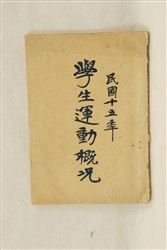 民國十五年
學生運動概况